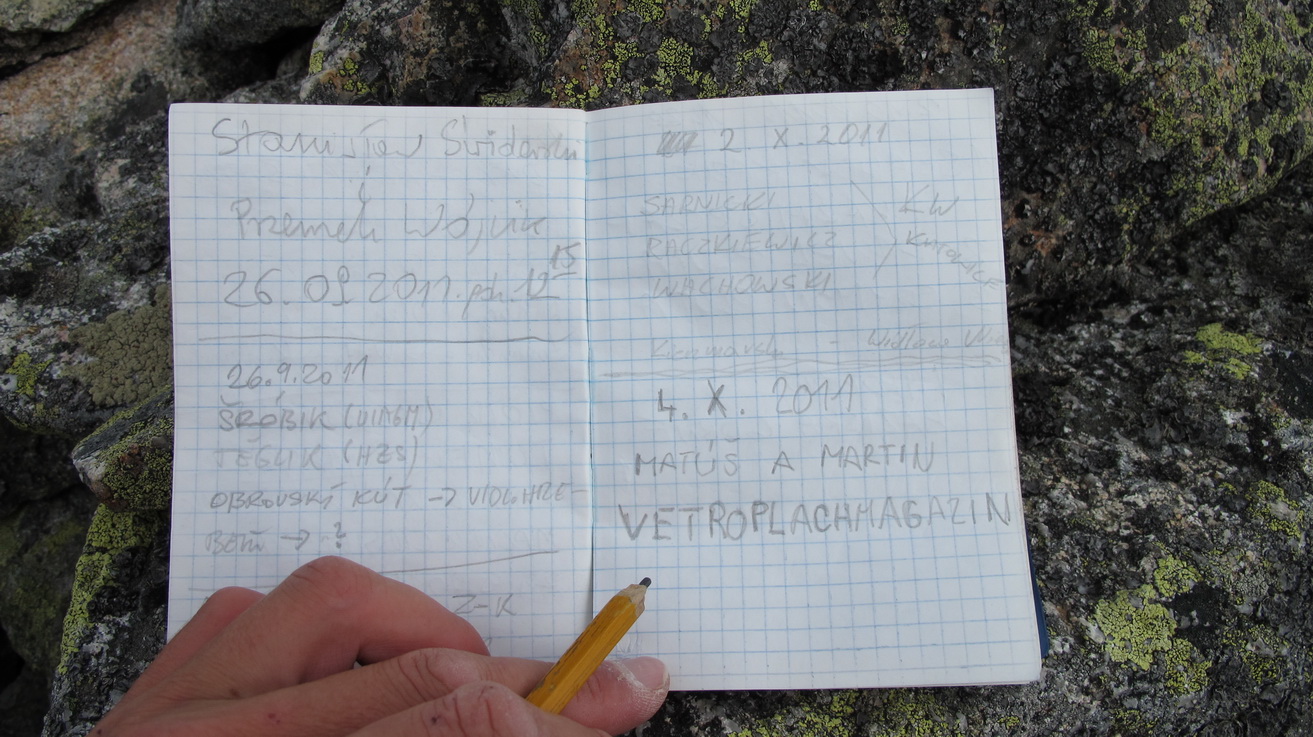 Stanisław Świderski
i
Przemek Wójcik
26.09.2011. godz. 12 15
26.9.2011
ŠRÓBIK (UIAGM)
TEGLIK (HZS)
OBROVSKÝ KÚT → VIDLHRE-
BEŇ → ?
Z-K
2. X. 2011
SARNICKI
RACZKIEWICZ
WACHOWSKI
KW
Katowice
Kieżmarski - Widłowy
4. X. 2011
MATÚŠ A MARTIN
VETROPLACHMAGAZIN